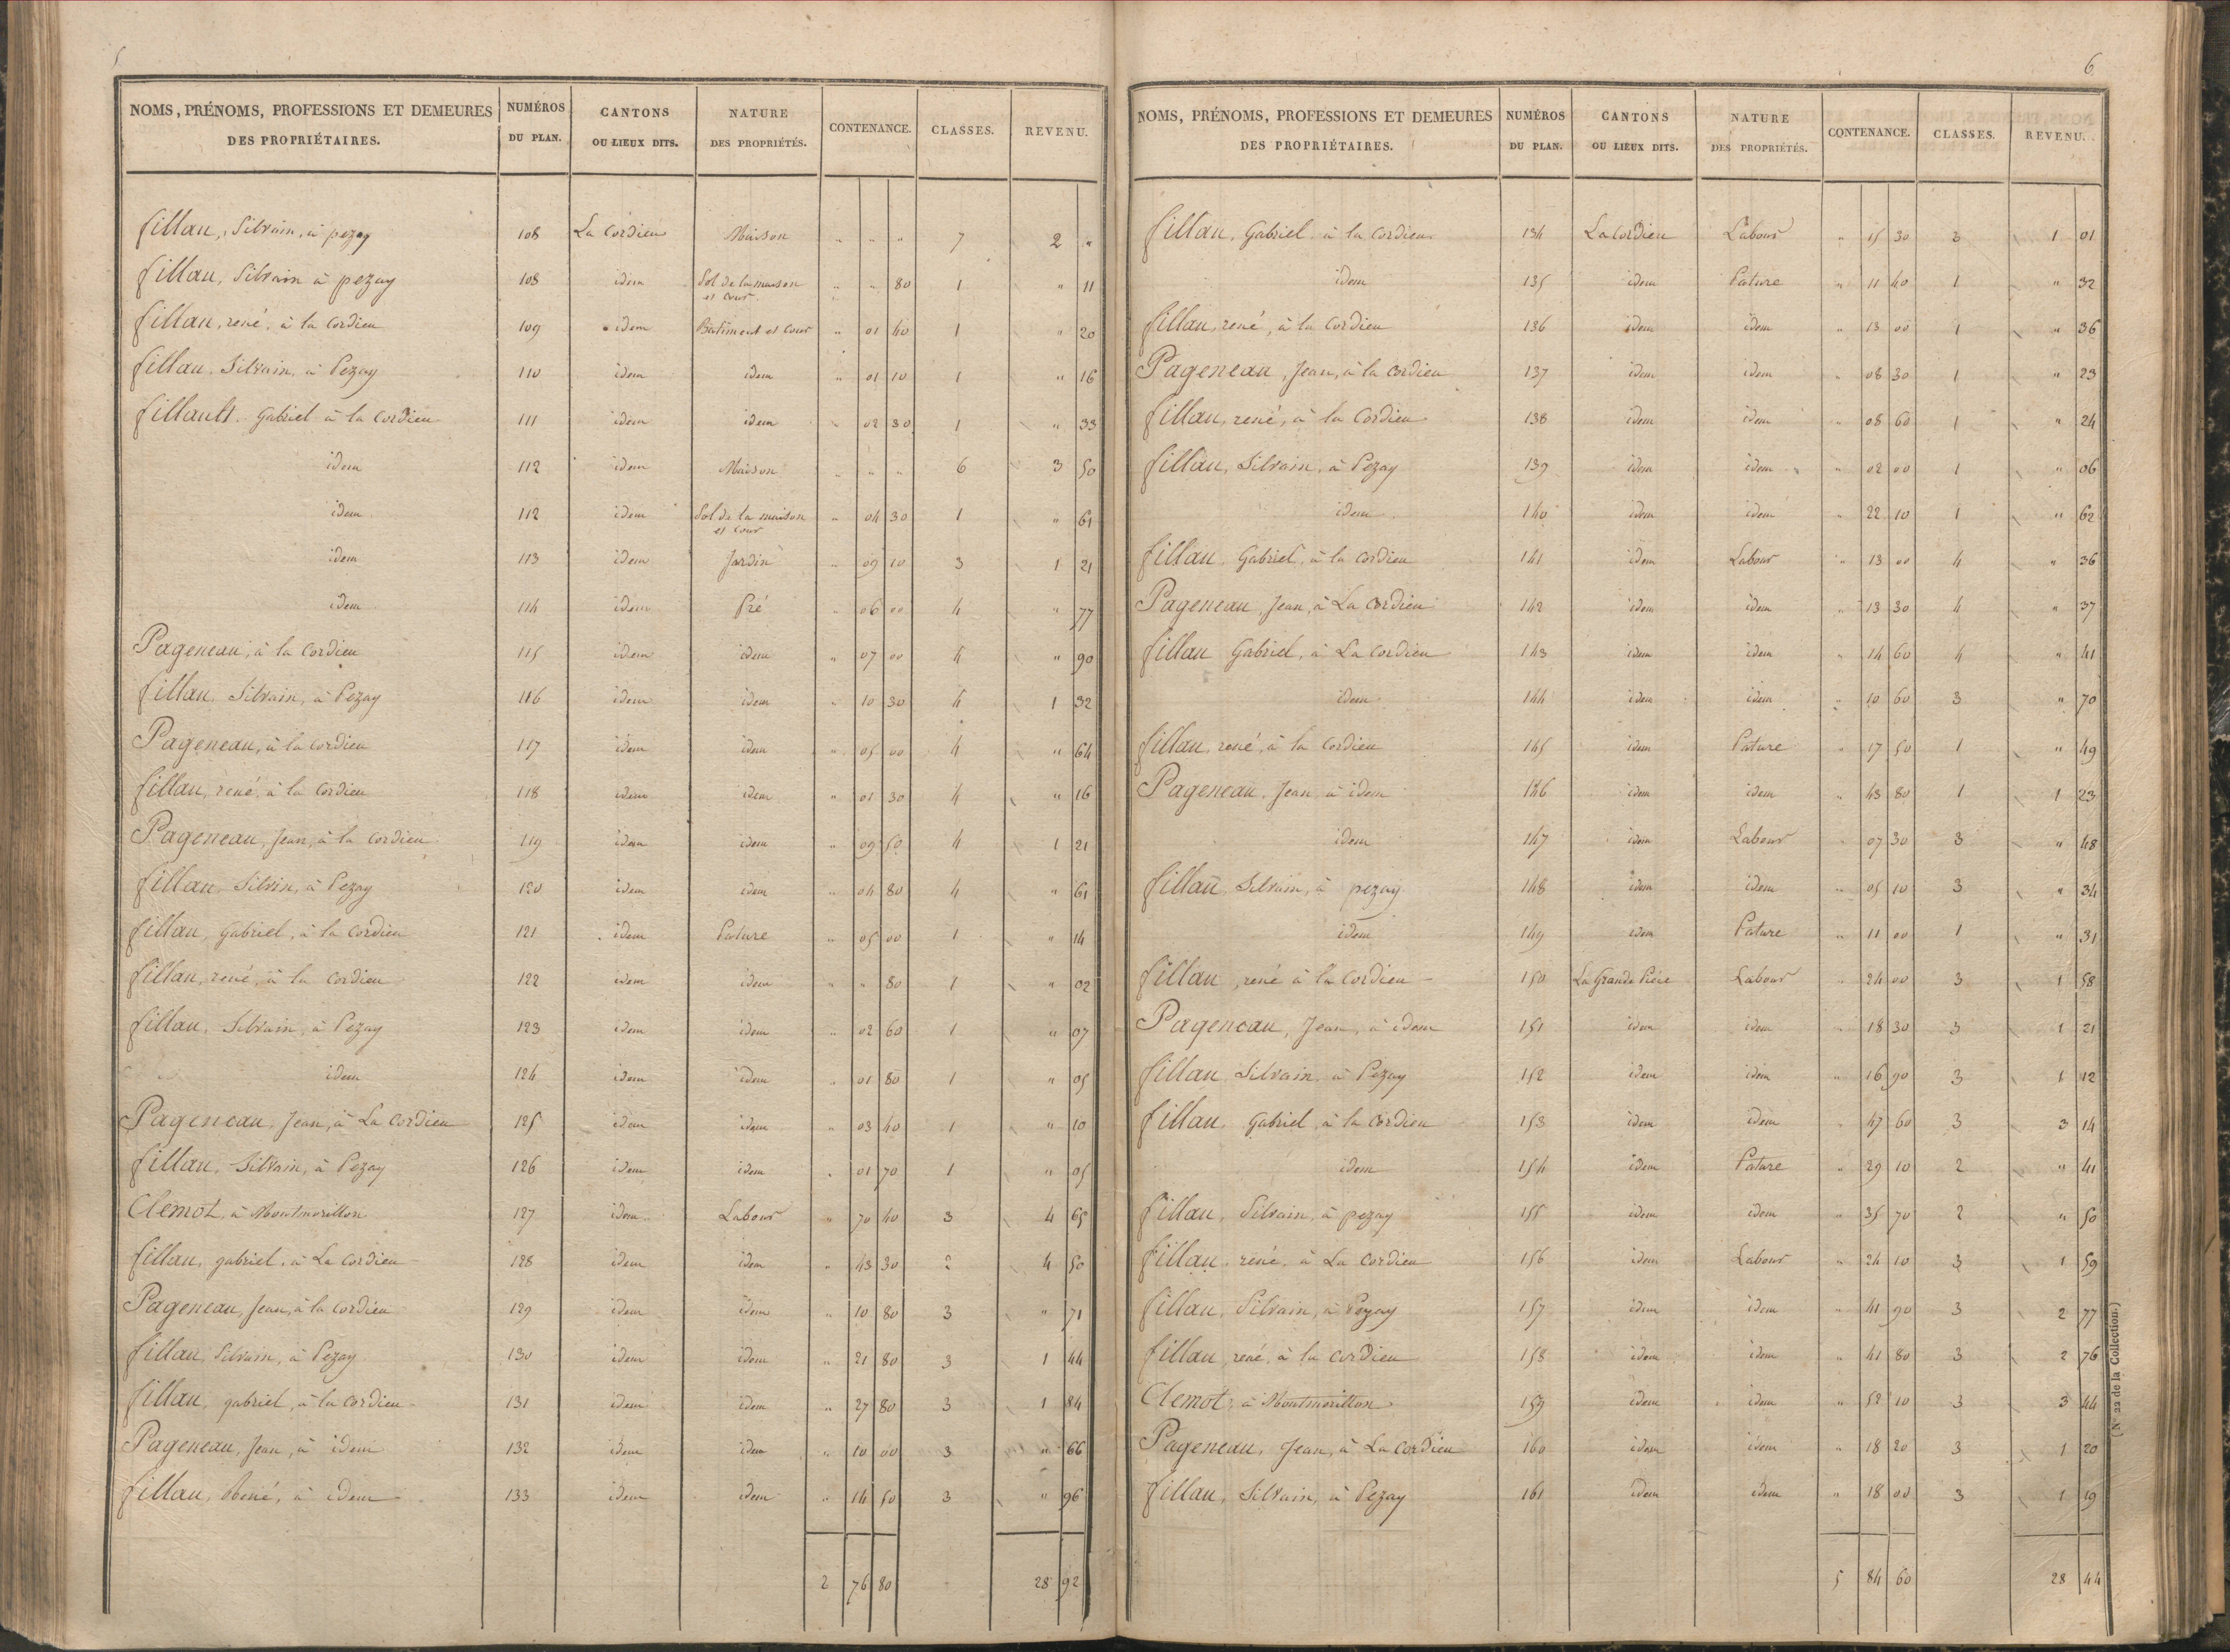 NOMS, PRÉNOMS, PROFESSIONS ET DEMEURES DES PROPRIÉTAIRES. NUMÉROS DU PLAN. CANTONS OU LIEUX DITS. NATURE DES PROPRIÉTÉS. CONTENANCE. CLASSES. REVENU.
fillau, Silvain, à pezay 108 La Cordieu Maison " " " 7 2 "
fillau, Silvain à pezay 108 idem Sol de la maison et cour " " 80 1 " 11
fillau, rené, à la Cordieu 109 idem Batiment et cour " 01 40 1 " 20
fillau, Silvain, à Pezay 110 idem idem " 01 10 1 " 16
fillault, Gabriel à la Cordieu 111 idem idem " 02 30 1 " 33
idem 112 idem Maison " " " 6 3 50
idem 112 idem Sol de la maison et cour " 04 30 1 " 61
idem 113 idem Jardin " 09 10 3 1 21
idem 114 idem Pré " 06 00 4 " 77
Pageneau, à la Cordieu 115 idem idem " 07 00 4 " 90
fillau, Silvain, à Pezay 116 idem idem " 10 30 4 1 32
Pageneau, à la Cordieu 117 idem idem " 05 00 4 " 64
fillau, rené, à la Cordieu 118 idem idem " 01 30 4 " 16
Pageneau, Jean, à la Cordieu 119 idem idem " 09 50 4 1 21
fillau, Silvin, à Pezay 120 idem idem " 04 80 4 " 61
fillau, Gabriel, à la Cordieu 121 idem Pature " 05 00 1 " 14
fillau, rené, à la Cordieu 122 idem idem " " 80 1 " 02
fillau, Silvain, à Pezay 123 idem idem " 02 60 1 " 07
idem 124 idem idem " 01 80 1 " 05
Pageneau, Jean, à La Cordieu 125 idem idem " 03 40 1 " 10
fillau, Silvain, à Pezay 126 idem idem " 01 70 1 " 05
Clemot, à Montmorillon 127 idem Labour " 70 40 3 4 65
fillau, gabriel, à La Cordieu 128 idem idem " 43 30 2 4 50
Pageneau, Jean, à la Cordieu 129 idem idem " 10 80 3 " 71
fillau, Silvain, à Pezay 130 idem idem " 21 80 3 1 44
fillau, gabriel, à la Cordieu 131 idem idem " 27 80 3 1 84
Pageneau, Jean, à idem 132 idem idem " 10 00 3 " 66
fillau, René, à idem 133 idem idem " 14 50 3 " 96
2 76 80 28 92
6
NOMS, PRÉNOMS, PROFESSIONS ET DEMEURES DES PROPRIÉTAIRES. NUMÉROS DU PLAN. CANTONS OU LIEUX DITS. NATURE DES PROPRIÉTÉS. CONTENANCE. CLASSES. REVENU.
fillau, Gabriel à la Cordieu 134 La Cordieu Labour " 15 30 3 1 01
idem 135 idem Pature " 11 40 1 " 32
fillau, rené, à la Cordieu 136 idem idem " 13 00 1 " 36
Pageneau, Jean, à la Cordieu 137 idem idem " 08 30 1 " 23
fillau, rené, à la Cordieu 138 idem idem " 08 60 1 " 24
fillau, Silvain, à Pezay 139 idem idem " 02 00 1 " 06
idem 140 idem idem " 22 10 1 " 62
fillau, Gabriel, à la Cordieu 141 idem Labour " 13 00 4 " 36
Pageneau, Jean, à La Cordieu 142 idem idem " 13 30 4 " 37
fillau Gabriel, à La Cordieu 143 idem idem " 14 60 4 " 41
idem 144 idem idem " 10 60 3 " 70
fillau, rené, à la Cordieu 145 idem Pature " 17 50 1 " 49
Pageneau, Jean à idem 146 idem idem " 43 80 1 1 23
idem 147 idem Labour " 07 30 3 " 48
fillau Silvain, à pezay 148 idem idem " 05 10 3 " 34
idem 149 idem Pature " 11 00 1 " 31
fillau, rené à la Cordieu 150 La Grande Piéce Labour " 24 00 3 1 58
Pageneau, Jean, à idem 151 idem idem " 18 30 3 1 21
fillau, Silvain, à Pezay 152 idem idem " 16 90 3 1 12
fillau, Gabriel, à la Cordieu 153 idem idem " 47 60 3 3 14
idem 154 idem Pature " 29 10 2 " 41
fillau, Silvain, à pezay 155 idem idem " 35 70 2 " 50
fillau, rené, à La Cordieu 156 idem Labour " 24 10 3 1 59
fillau, Silvain, à Pezay 157 idem idem " 41 90 3 2 77
fillau, rené, à la Cordieu 158 idem idem " 41 80 3 2 76
Clemot, à Montmorillon 159 idem idem " 52 10 3 3 44
Pageneau, Jean, à La Cordieu 160 idem idem " 18 20 3 1 20
fillau, Silvain, à Pezay 161 idem idem " 18 00 3 1 19
5 84 60 28 44
(N° 22 de la Collection.)